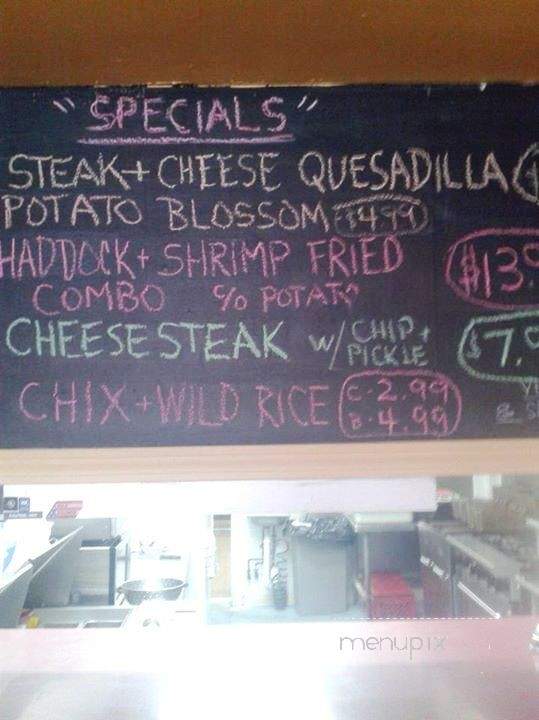 "SPECIALS"
STEAK + CHEESE QUESADILLA
POTATO BLOSSOM $4.99
HADDOCK + SHRIMP FRIED $13.
COMBO % POTATO
CHEESESTEAK W/ CHIP + PICKLE $7.
CHIX + WILD RICE C. 2.99
B. 4.99
menupix